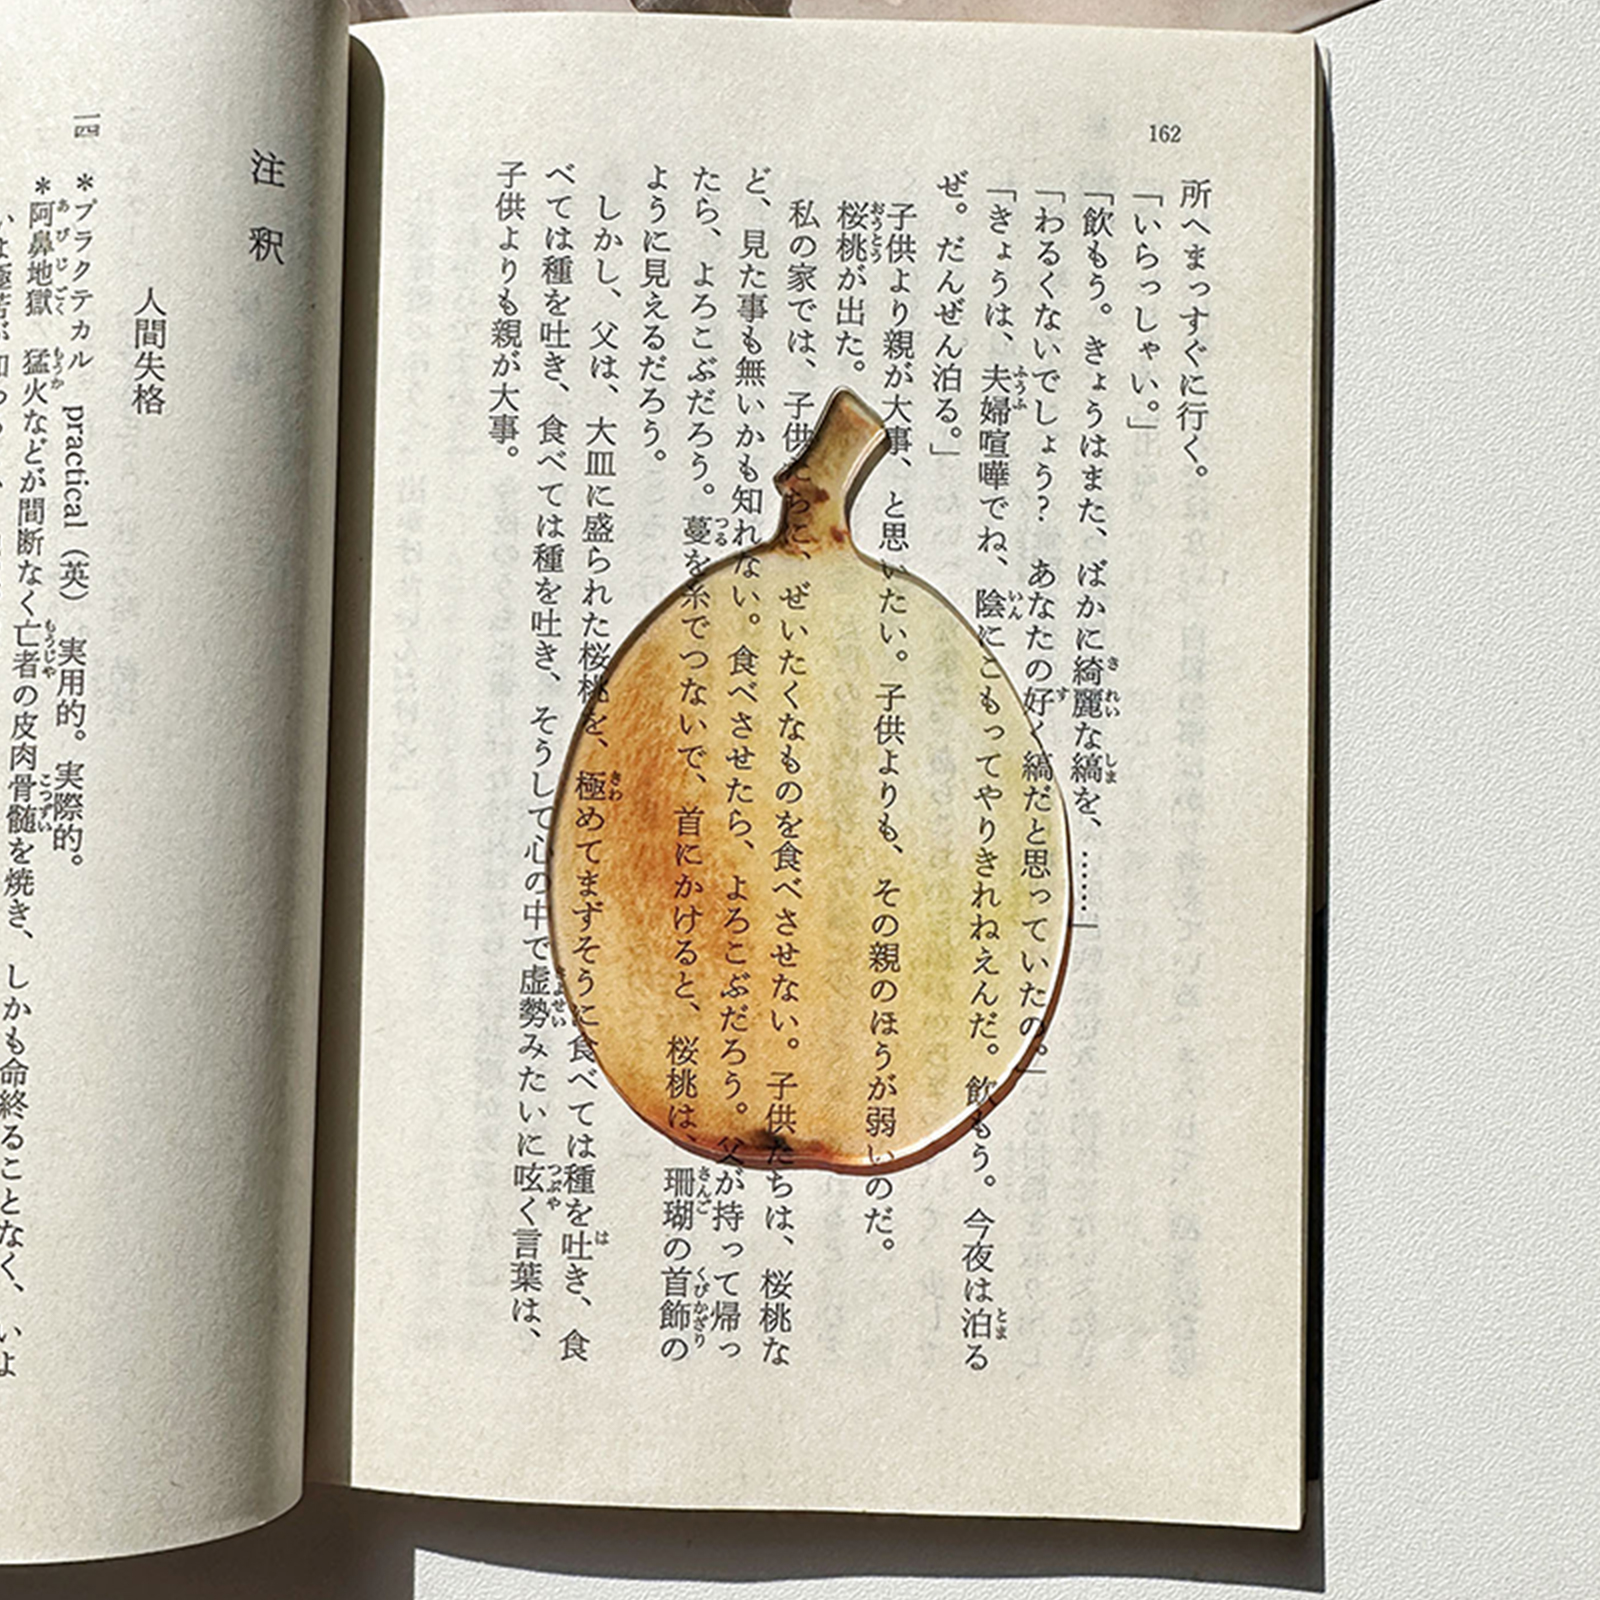 162
所へまっすぐに行く。
「いらっしゃい。」
「飲もう。きょうはまた、ばかに綺麗な縞を、……」
「わるくないでしょう? あなたの好く縞だと思っていたの。」
「きょうは、夫婦喧嘩でね、陰にこもってやりきれねえんだ。飲もう。今夜は泊る
ぜ。だんぜん泊る。」
子供より親が大事、と思いたい。子供よりも、その親のほうが弱いのだ。
桜桃が出た。
私の家では、子供たちに、ぜいたくなものを食べさせない。子供たちは、桜桃な
ど、見た事も無いかも知れない。食べさせたら、よろこぶだろう。父が持って帰っ
たら、よろこぶだろう。蔓を糸でつないで、首にかけると、桜桃は、珊瑚の首飾の
ように見えるだろう。
しかし、父は、大皿に盛られた桜桃を、極めてまずそうに食べては種を吐き、食
べては種を吐き、食べては種を吐き、そうして心の中で虚勢みたいに呟く言葉は、
子供よりも親が大事。
注釈
人間失格
一四 *プラクテカル practical（英） 実用的。実際的。
*阿鼻地獄 猛火などが間断なく亡者の皮肉骨髄を焼き、しかも命終ることなく、いよ